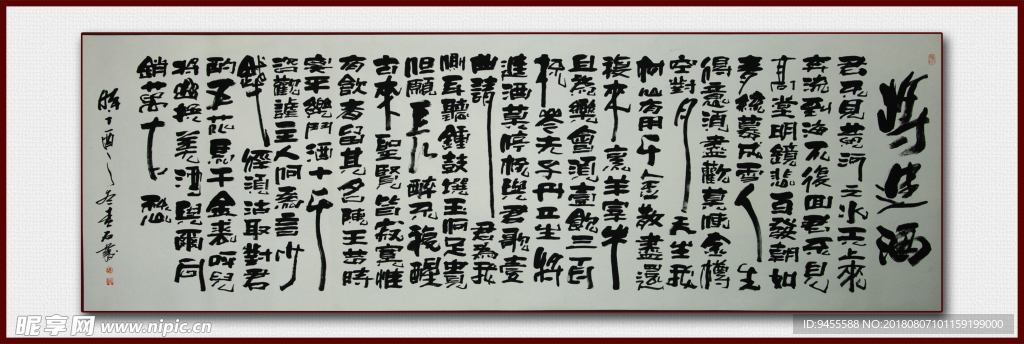 將進酒
君不見黃河之水天上來
奔流到海不復回君不見
高堂明鏡悲百發朝如
青絲暮成雪人生
得意須盡歡莫使金樽
空對月天生我
材必有用千金散盡還
復來烹羊宰牛
且為樂會須壹飲三百
杯岑夫子丹丘生將
進酒莫停杯與君歌壹
曲請君為我
側耳聽鐘鼓饌玉何足貴
但願長醉不復醒
古來聖賢皆寂寞惟
有飲者留其名陳王昔時
宴平樂鬥酒十千
恣歡謔主人何為言少
錢徑須沽取對君
酌五花馬千金裘呼兒
將出換美酒與爾同
銷萬古愁
丁酉
昵享网 www.nipic.cn
ID:9455588 NO:20180807101159199000